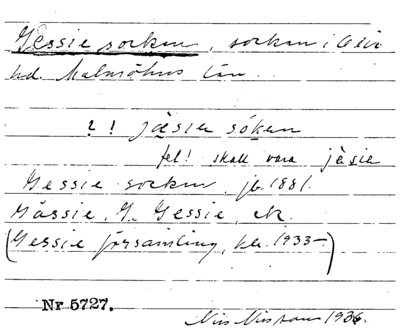 Gessie socken, socken i Oxie
hd Malmöhus län.
? ! jäsie såken
fel! skall vara jèsie
Gessie socken, jb. 1881.
Gässie, G. Gessie, ek.
(Gessie församling, ka. 1933—)
Nr 5727.
Nils Nilsson 1936.